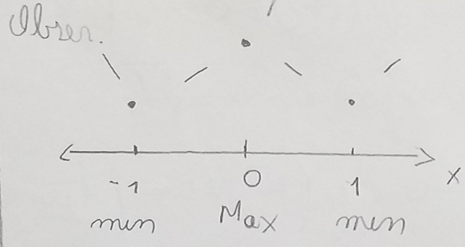 Obser.
-1 0 1 x
min Max min